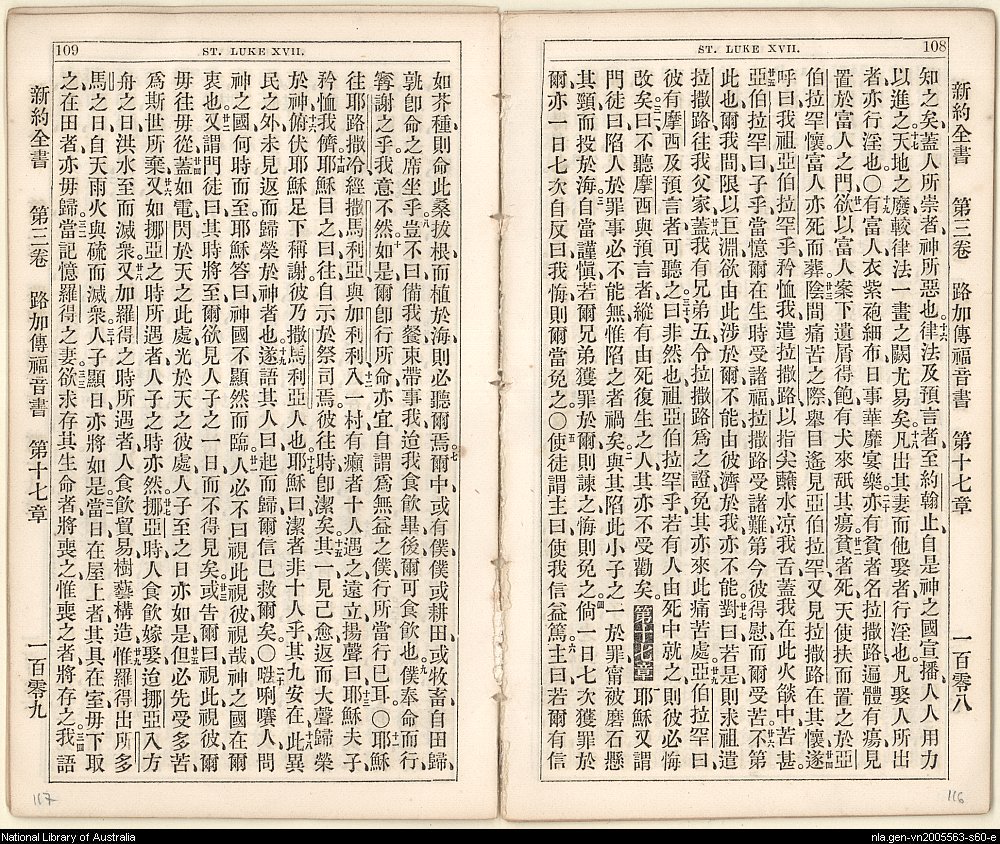 108
ST. LUKE XVII.
新約全書 第三卷 路加傳福音書 第十七章 一百零八
知之矣、蓋人所崇者、神所惡也、律法及預言者至約翰止、自是神之國宣播、人人用力
以進之、天地之廢、較律法一畫之闕尤易矣、凡出其妻而他娶者、行淫也、凡娶人所出
者亦行淫也。○有富人衣紫袍細布、日事華靡宴樂、亦有貧者名拉撒路、遍體有瘍、見
置於富人之門、欲以富人案下遺屑得飽、有犬來舐其瘍、貧者死、天使扶而置之於亞
伯拉罕懷、富人亦死而葬、陰間痛苦之際、舉目遙見亞伯拉罕、又見拉撒路在其懷、遂
呼曰、我祖亞伯拉罕乎、矜恤我、遣拉撒路以指尖蘸水凉我舌、蓋我在此火燄中苦甚。
亞伯拉罕曰、子乎、當憶爾在生時受諸福、拉撒路受諸難、第今彼得慰而爾受苦、不第
此也、爾我間限以巨淵、欲由此涉於爾不能、由彼濟於我亦不能、對曰、若是則求祖遣
拉撒路往我父家、蓋我有兄弟五、令拉撒路爲之證、免其亦來此痛苦處、亞伯拉罕曰、
彼有摩西及預言者可聽之、曰、非然也、祖亞伯拉罕乎、若有人由死中就之、則彼必悔
改矣、曰、不聽摩西與預言者、縱有由死復生之人、其亦不受勸矣。第十七章 耶穌又謂
門徒曰、陷人於罪事必不能無、惟陷之者禍矣、與其陷此小子之一於罪、甯被磨石懸
其頸而投於海、自當謹愼、若爾兄弟獲罪於爾則諫之、悔則免之、倘一日七次獲罪於
爾、亦一日七次自反曰、我悔、則爾當免之。○使徒謂主曰、使我信益篤、主曰、若爾有信
116
109
ST. LUKE XVII.
如芥種、則命此桑拔根而植於海、則必聽爾焉、爾中或有僕、僕或耕田、或牧畜、自田歸、
孰卽命之席坐乎、豈不曰備我餐、束帶事我、迨我食飲畢、後爾可食飲也、僕奉命而行、
甯謝之乎、我意不然、如是、爾卽行所命、亦宜自謂爲無益之僕、行所當行已耳。○耶穌
往耶路撒冷、經撒馬利亞與加利利、入一村、有癩者十人遇之、遠立揚聲曰、耶穌夫子
矜恤我儕、耶穌目之曰、往自示於祭司焉、彼往時卽潔矣、其一見己愈、返而大聲歸榮
於神、俯伏耶穌足下稱謝、彼乃撒馬利亞人也、耶穌曰、潔者非十人乎、其九安在、此異
民之外、未見返而歸榮於神者也、遂語其人曰、起而歸、爾信已救爾矣。○𠵽唎㘔人、問
神之國何時而至、耶穌答曰、神國不顯然而臨、人必不曰視此視彼、哉神之國在爾
衷也、又謂門徒曰、其時將至、爾欲見人子之一日而不得見矣、或告爾曰、視此視彼、爾
毋往毋從、蓋如電閃於天之此處、光於天之彼處、人子至之日亦如是、但必先受多苦、
爲斯世所棄、又如挪亞之時所遇者、人子之時亦然、挪亞時、人食飲嫁娶、迨挪亞入方
舟之日、洪水至而滅衆、又如羅得之時所遇者、人食飲貿易、樹藝構造、惟羅得出所多
馬之日、自天雨火與硫而滅衆、人子顯日亦將如是、當日在屋上者、其具在室、毋下取
之、在田者亦毋歸、當記憶羅得之妻、欲求存其生命者將喪之、惟喪之者將存之、我語
新約全書 第三卷 路加傳福音書 第十七章 一百零九
117
National Library of Australia
nla.gen-vn2005563-s60-e